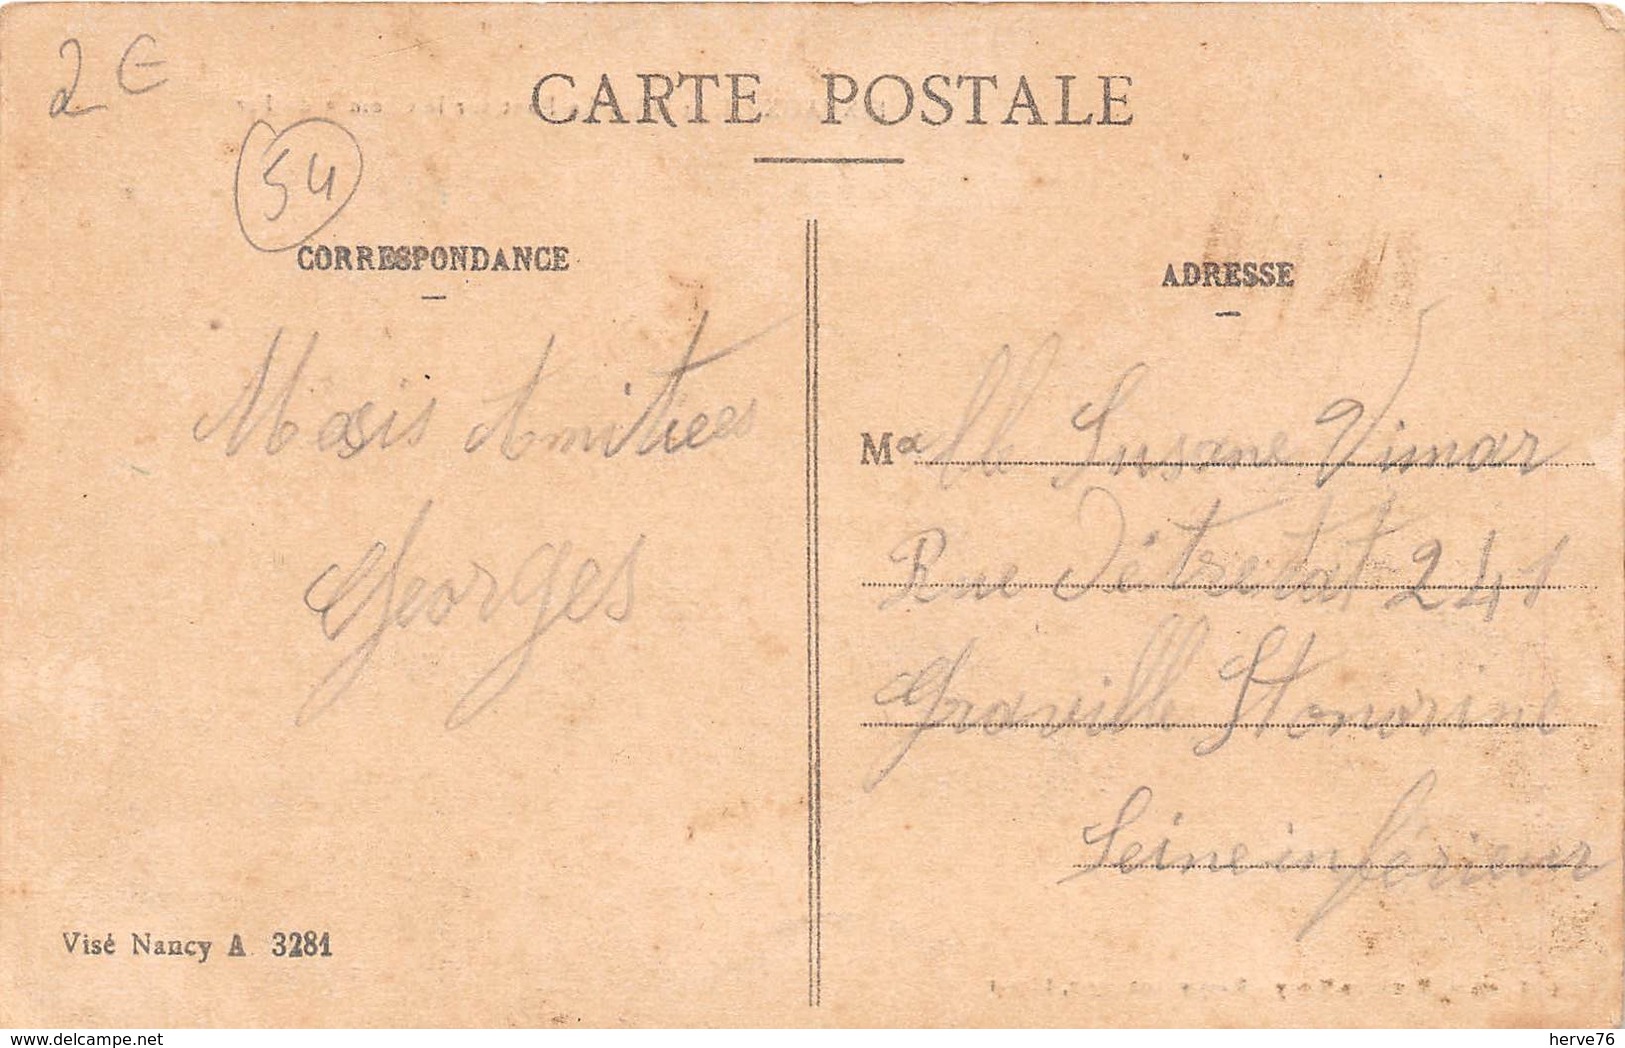 2 €
CARTE POSTALE
54
CORRESPONDANCE
Masis Amitiees
Georges
Visé Nancy A. 3281
ADRESSE
M^a lle Susane Vimar
Rue Détretat 241
Graville St onorine
Seine inférieur
delcampe.net
herve76